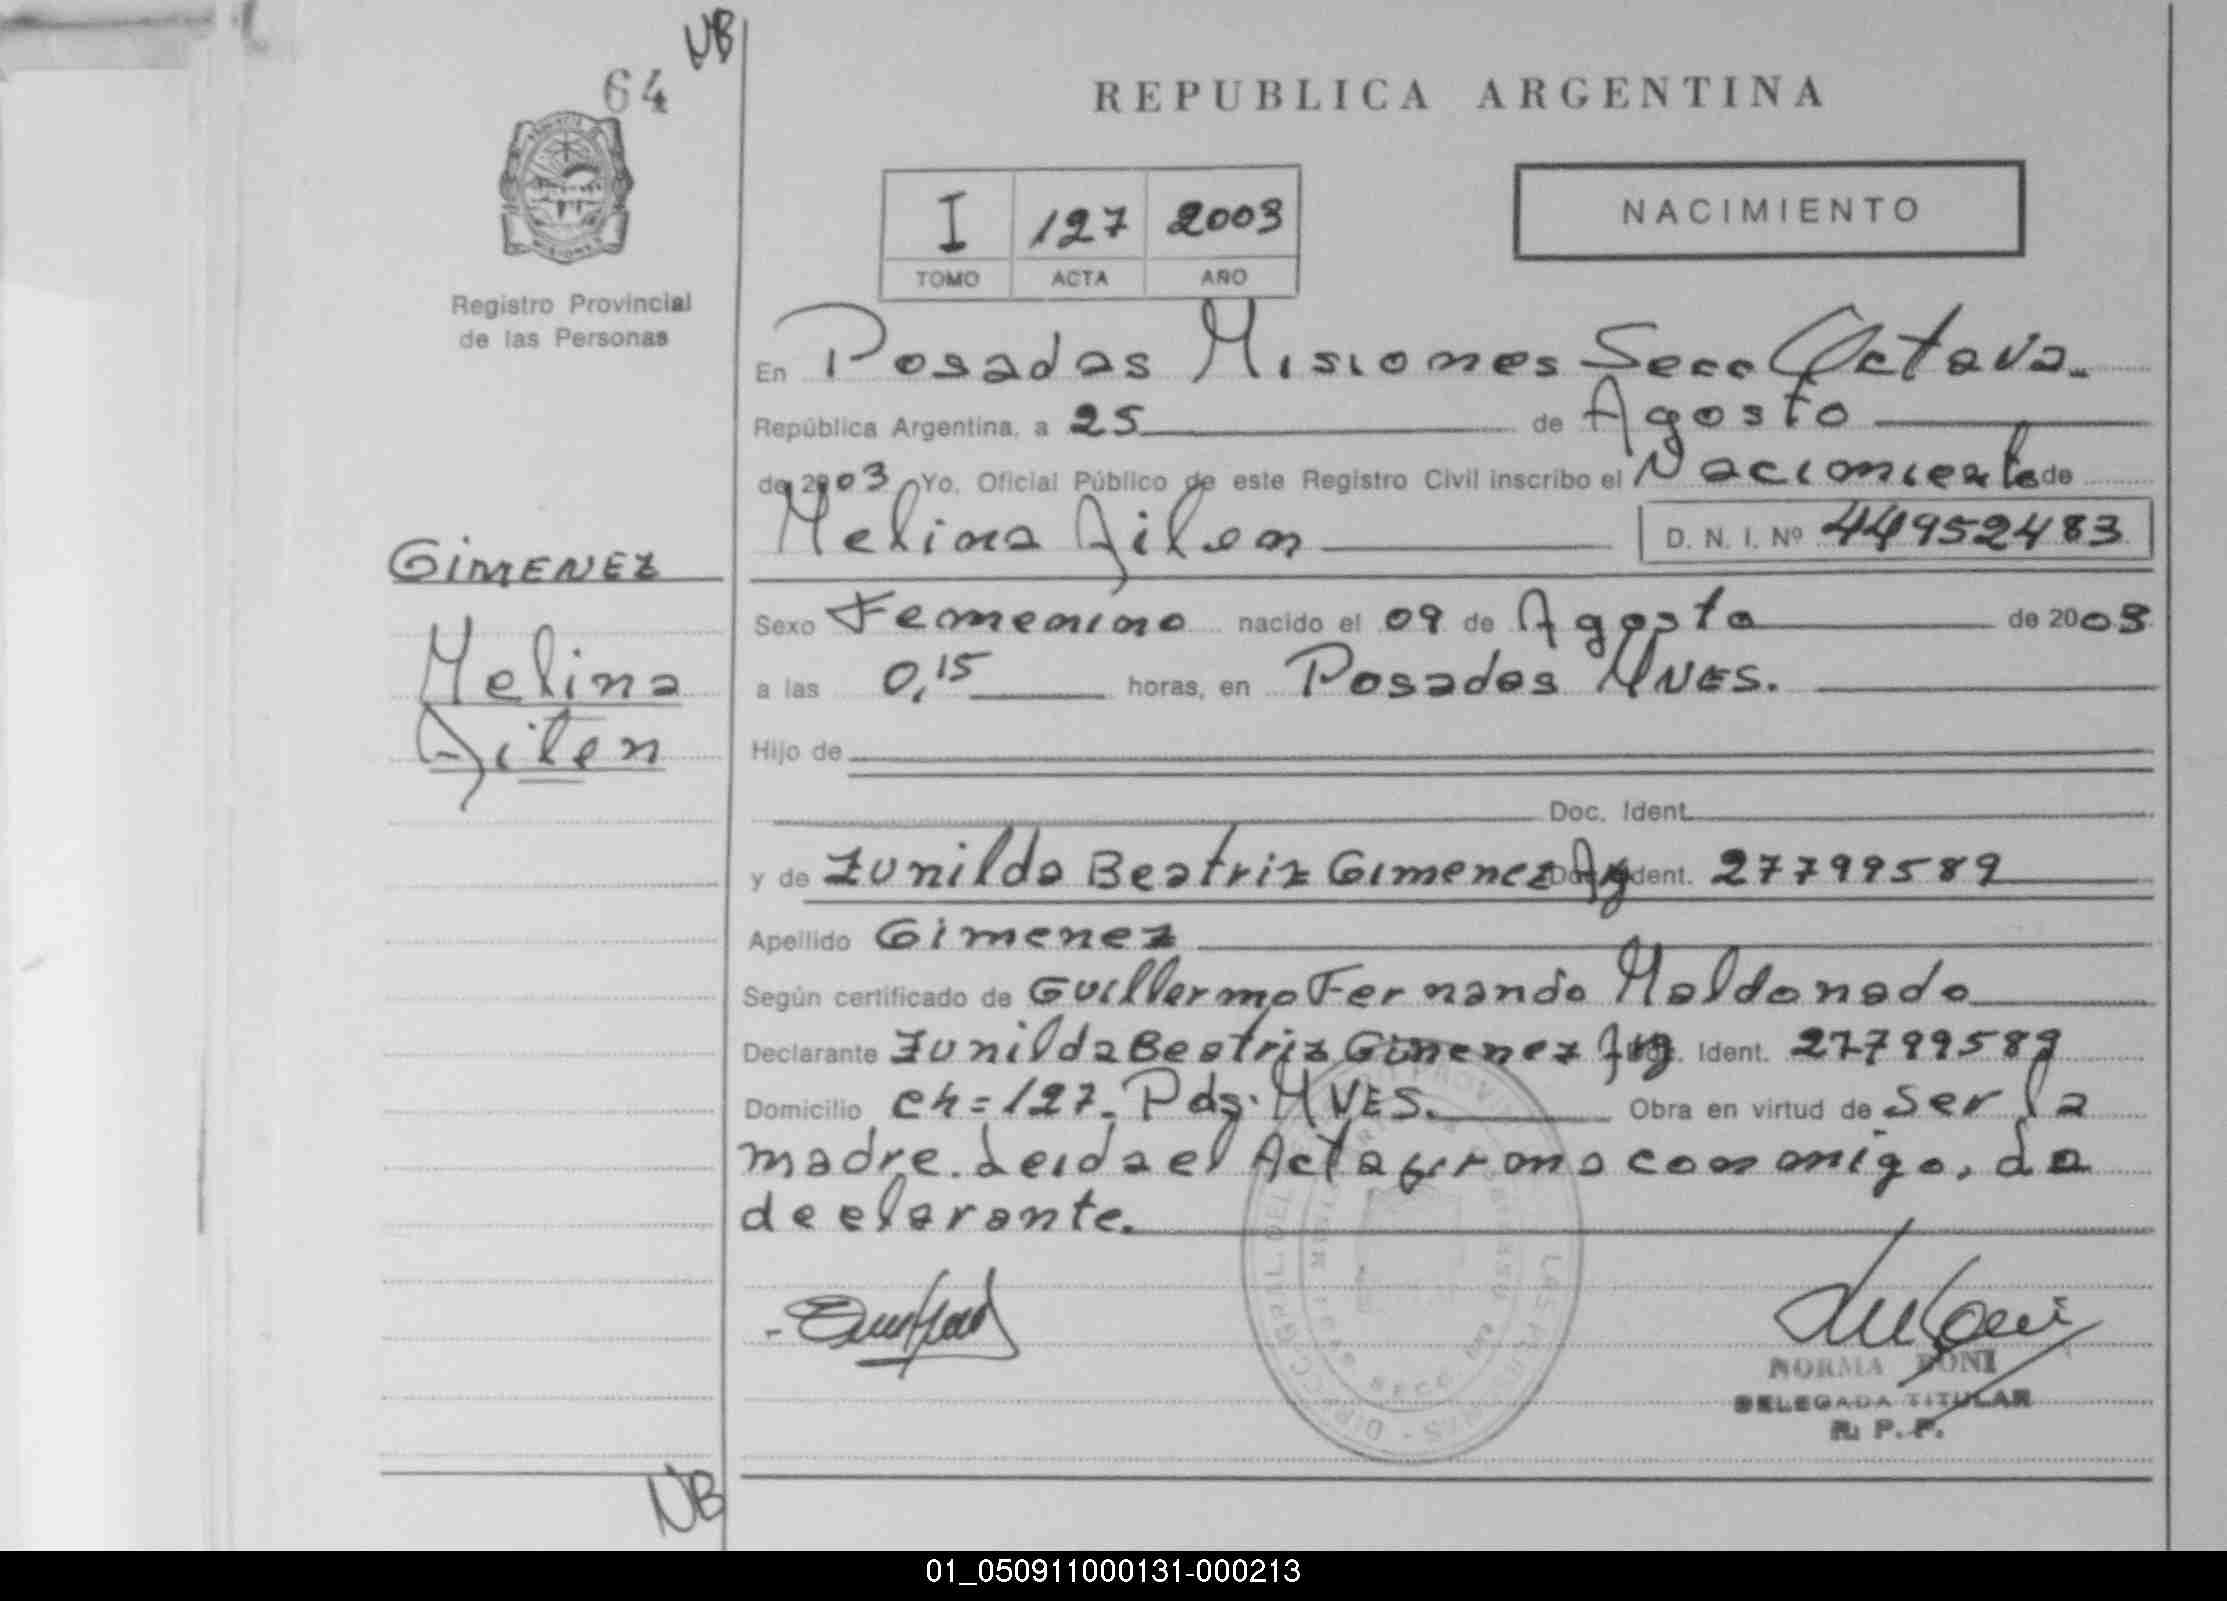 NB
64
REPUBLICA ARGENTINA
I 127 2003
TOMO ACTA AÑO
NACIMIENTO
Registro Provincial
de las Personas
En Posadas Misiones Secc Octava.
República Argentina, a 25 de Agosto
de 2003 Yo, Oficial Público de este Registro Civil inscribo el Nacimiento de
Melina Ailen D. N. I. Nº 44952483
GIMENEZ
Melina
Ailen
Sexo Femenino nacido el 09 de Agosto de 2003
a las 0,15 horas, en Posadas MNES.
Hijo de
Doc. Ident.
y de Zunilda Beatriz Gimenez Arg Doc. Ident. 27799589
Apellido Gimenez
Según certificado de Guillermo Fernando Maldonado
Declarante Zunilda Beatriz Gimenez Arg Doc. Ident. 27799589
Domicilio Ch=127. Pdas. MNES. Obra en virtud de ser la
madre. Leida el Acta firma conmigo, La
declarante.
NORMA BONI
DELEGADA TITULAR
R. P. P.
NB
01_050911000131-000213